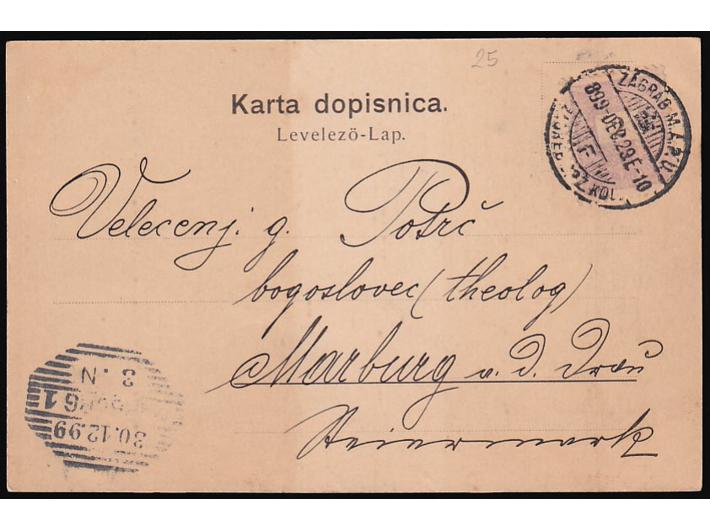 25
Karta dopisnica.
Levelező-Lap.
ZÁGRÁB M.Á.P.U.
899 DEC. 29. E-10
F
Velecenj. g. Potrč
bogoslovec (theolog)
Marburg a. d. Drau
Steiermark
3. N
1
30.12.99